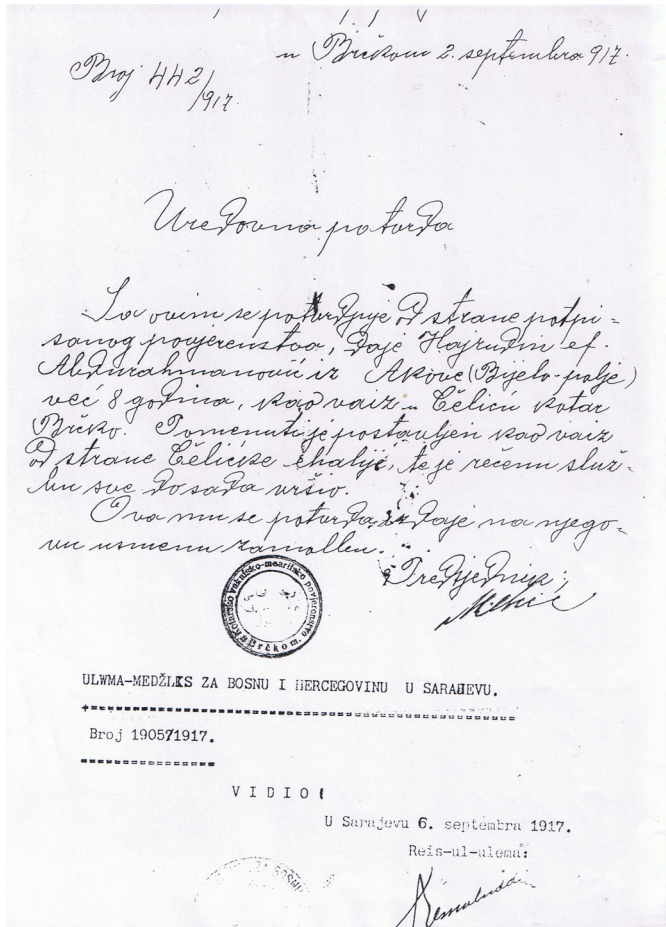 u Brčkom 2. septembra 917.
Broj 442/917.
Uredovna potvrda
Sa ovim se potvrdjuje od strane potpi=
sanog povjerenstva, daje Hajrudin ef.
Abdurahmanović iz Akove (Bijelo-polje)
već 8 godina, kao vaiz u Čeliću kotar
Brčko. Pomenuti je postavljen kao vaiz
od strane Čelićke ahalije, te je rečenu služ=
bu sve do sada vršio.
Ova mu se potvrda izdaje na njego=
vu usmenu zamolbu.
Predsjednik:
Kotarsko vakufsko-mearifsko povjerenstvo
u Brčkom.
ULWMA-MEDŽLKS ZA BOSNU I HERCEGOVINU U SARAJEVU.
Broj 190571917.
VIDIO!
U Sarajevu 6. septembra 1917.
Reis-ul-ulema:
ZA BOSNU